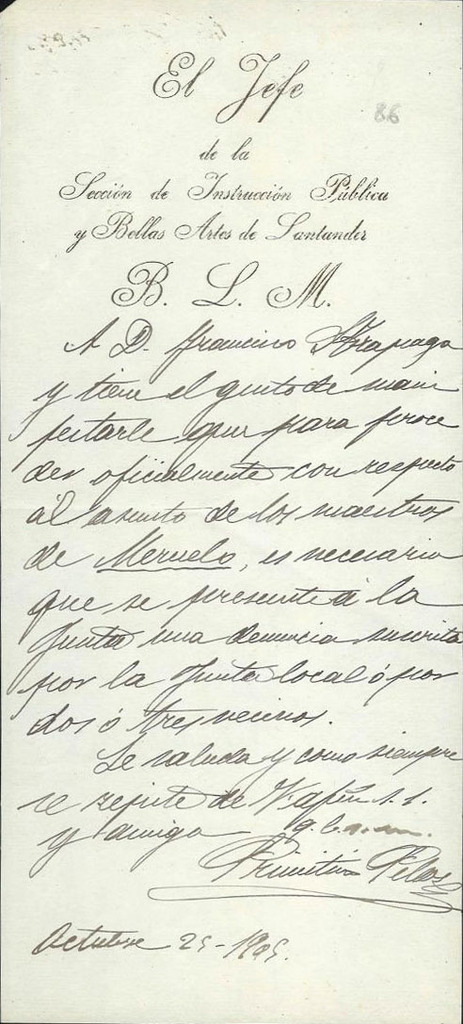 El Jefe
86
de la
Sección de Instrucción Pública
y Bellas Artes de Santander
B. L. M.
A D. Francisco
y tiene el gusto de mani
festarle que para proce
der oficialmente con respecto
al asunto de los maestros
de Meruelo, es necesario
que se presente á la
Junta una denuncia suscrita
por la Junta local ó por
dos ó tres vecinos.
Le saluda y como siempre
se repite de V. afmo s. s.
y amigo q. b. s. m.
Primitivo
Octubre 25-1905.